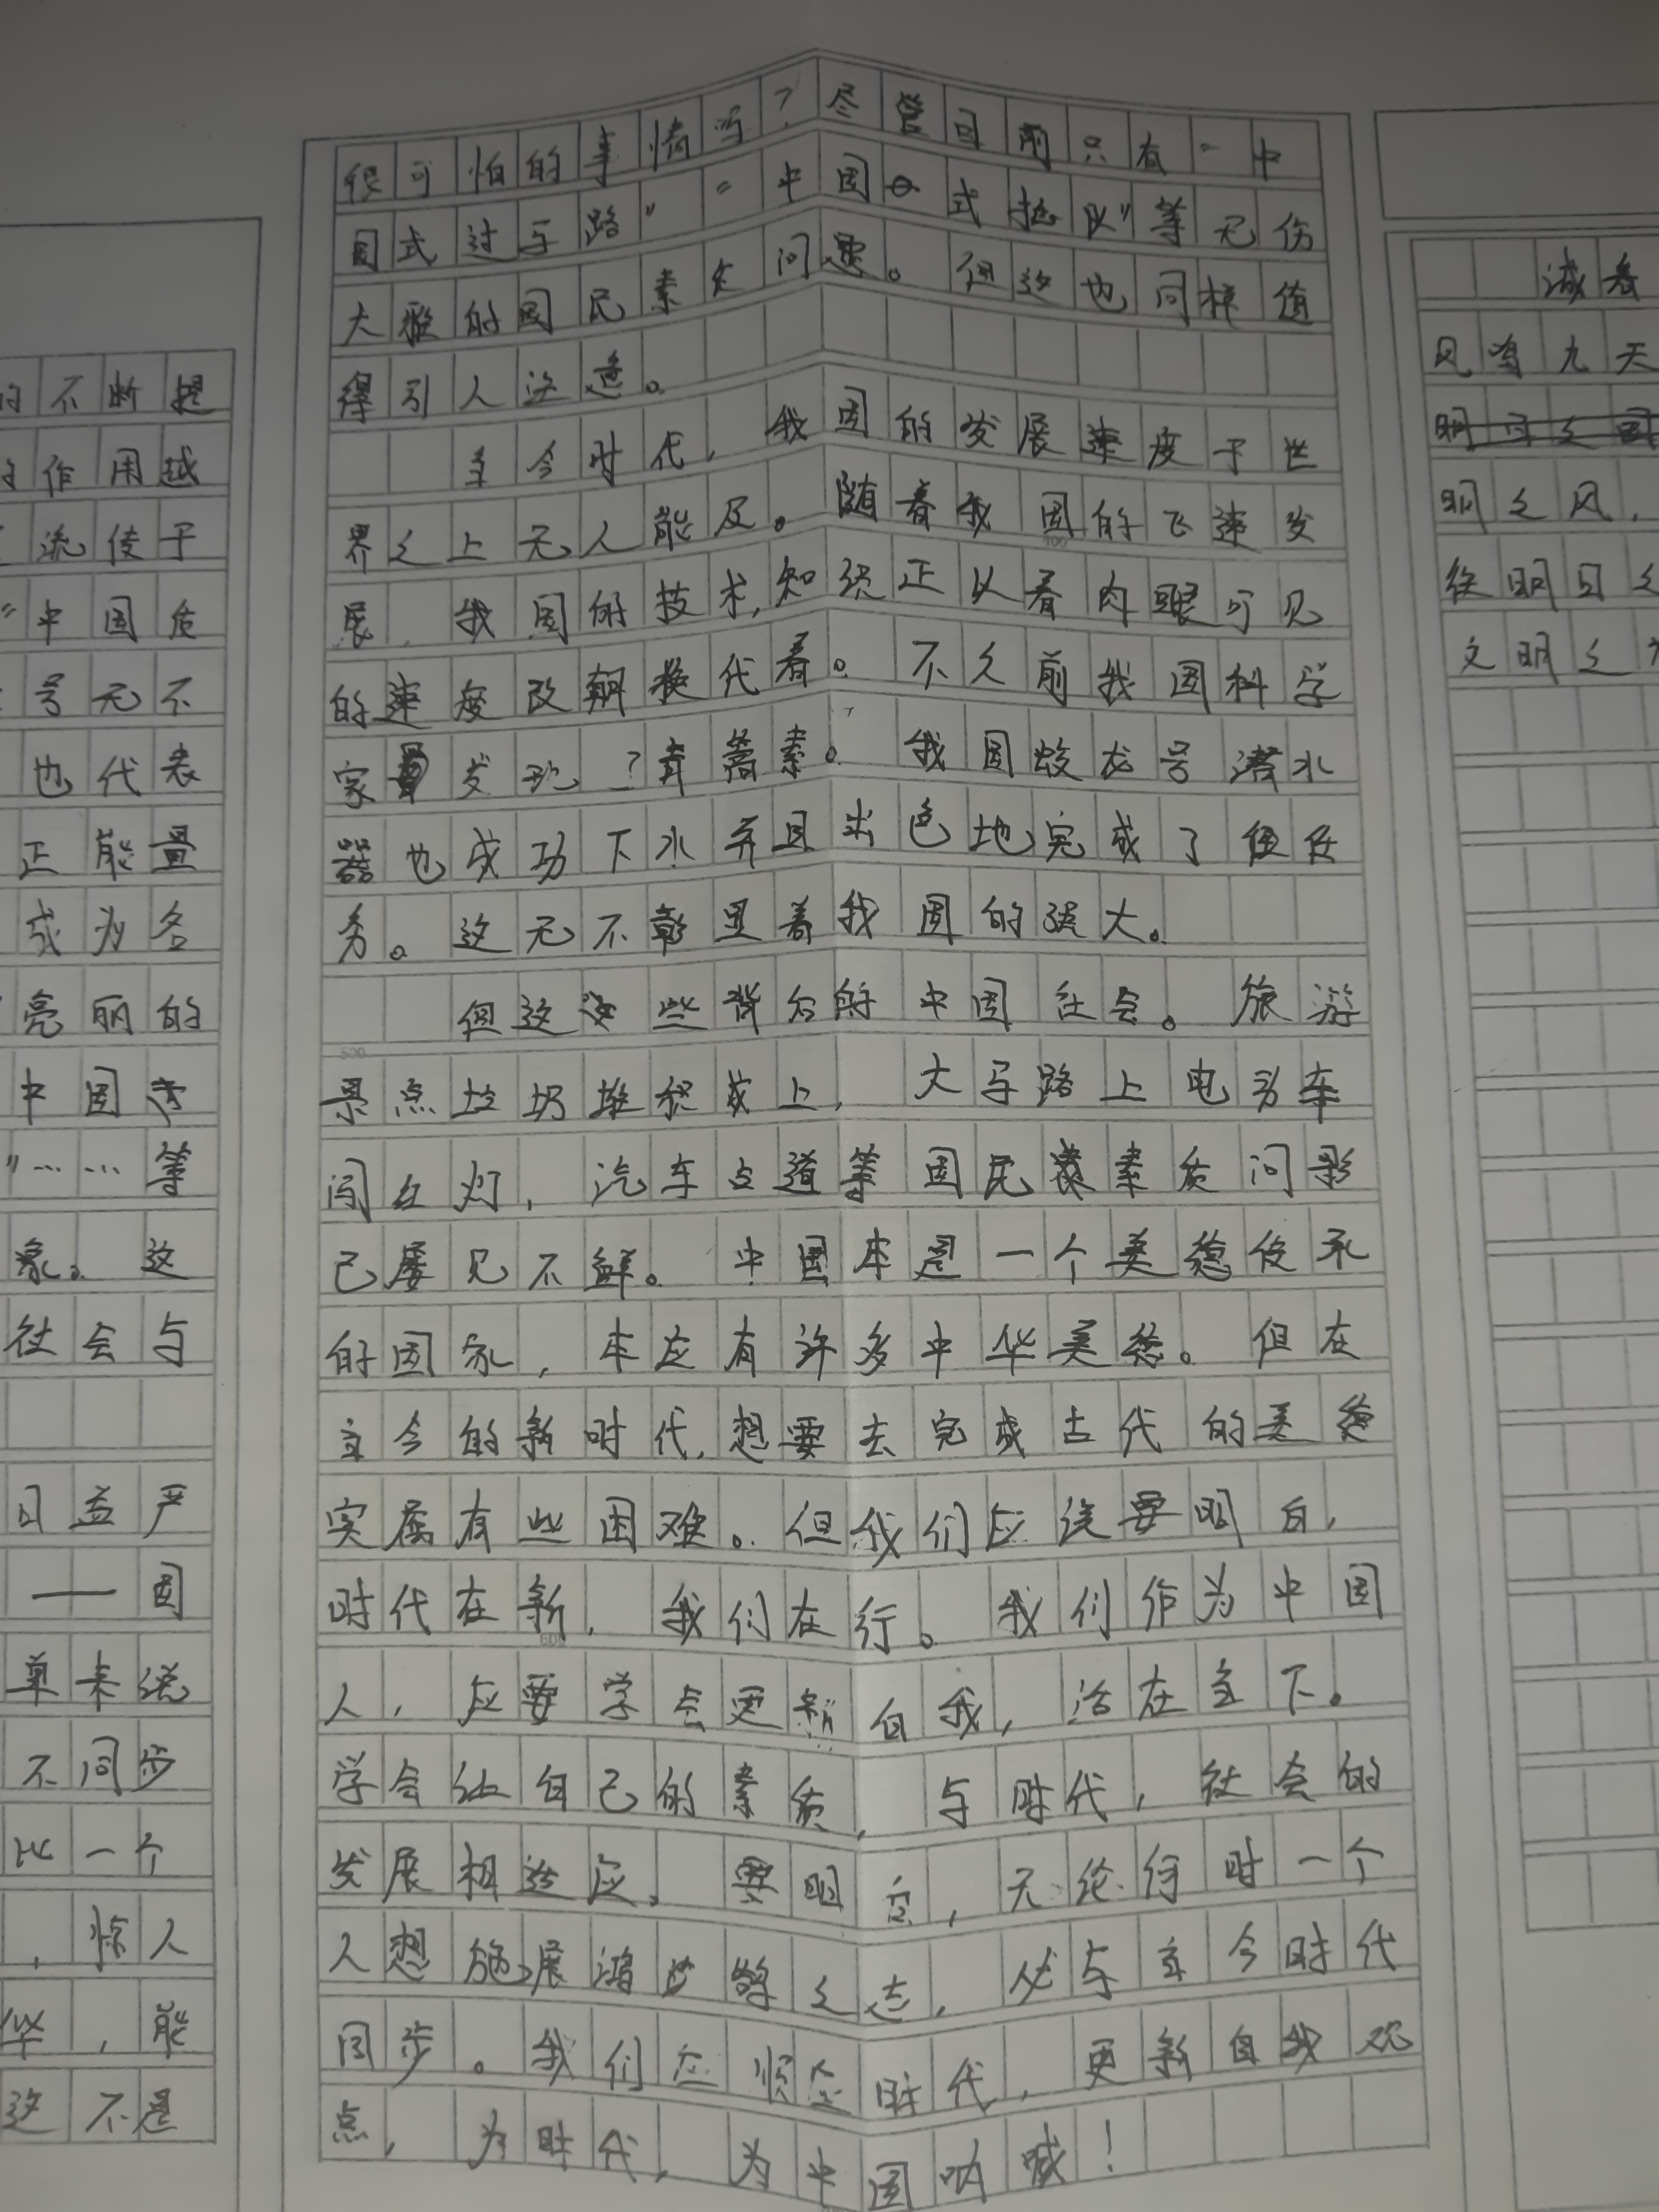 的不断提
的作用越
流传于
“中国质
号无不
也代表
正能量
成为各
亮丽的
中国
”……等
象。这
社会与
日益严
——国
单来说
不同步
比一个
，惊人
华，能
这不是
很可怕的事情吗？尽管目前只有“中
国式过马路”“中国式插队”等无伤
大雅的国民素质问题。但这也同样值
得引人注意。
当今时代，我国的发展速度于世
界之上无人能及。随着我国的飞速发
展，我国的技术，知识正以着肉眼可见
的速度改朝换代着。不久前我国科学
家发现？青蒿素。我国蛟龙号潜水
器也成功下水并且出色地完成了任
务。这无不彰显着我国的强大。
但这些背后的中国社会。旅游
景点垃圾堆积成山，大马路上电动车
闯红灯，汽车占道等国民素质问题
已屡见不鲜。中国本是一个美德传承
的国家，本应有许多中华美德。但在
当今的新时代，想要去完成古代的美德
实属有些困难。但我们应该要明白，
时代在新，我们在行。我们作为中国
人，应要学会更新自我，活在当下。
学会让自己的素质，与时代，社会的
发展相适应。要明白，无论何时一个
人想施展鸿鹄之志，必与当今时代
同步。我们应顺应时代，更新自我观
点，为时代，为中国呐喊！
诚看
风鸣九天
明之风，
从明日之
文明之
400
500
600